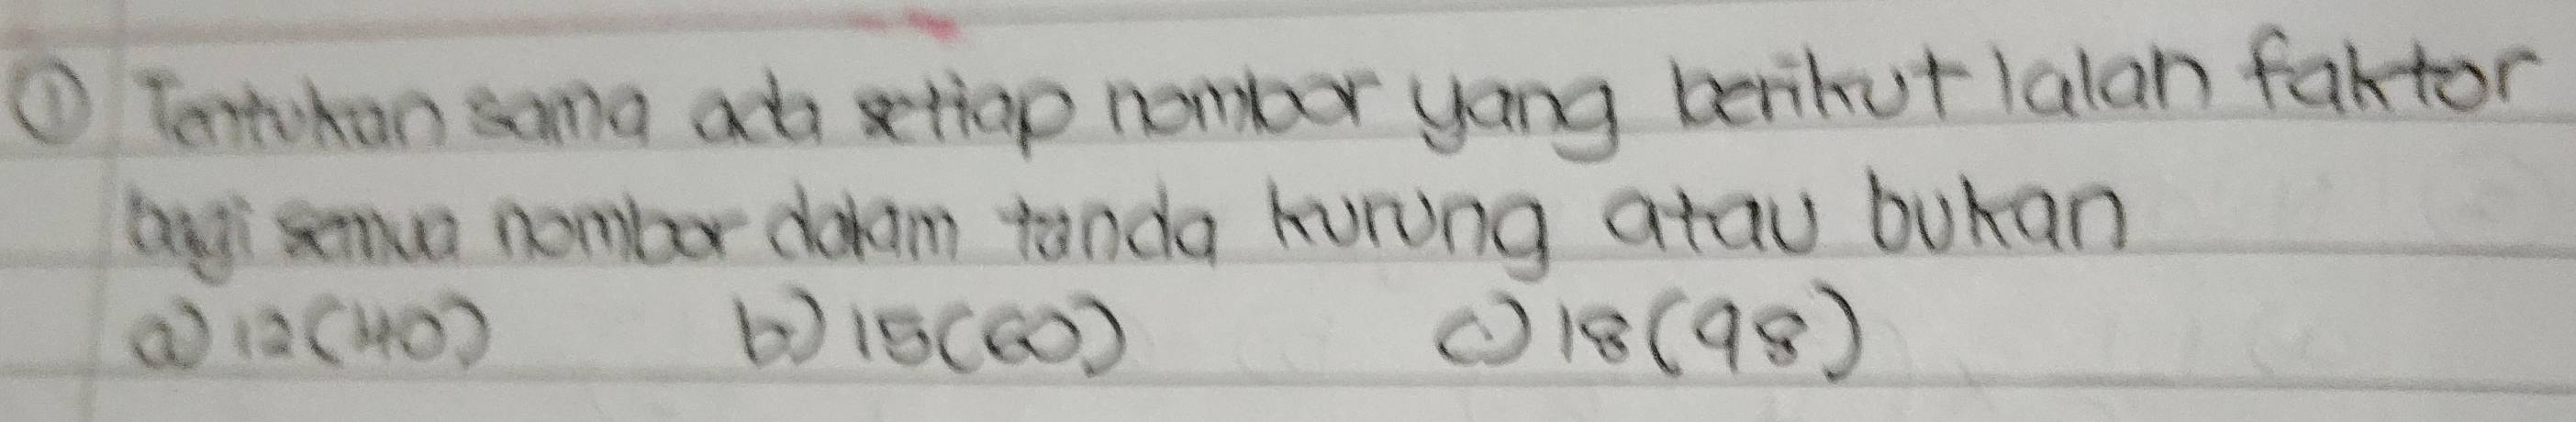 ① Tentukan sama ada setiap nombor yang berikut Ialah faktor
bagi semua nombor dalam tanda kurung atau bukan
a) 12(40) b) 15(60) c) 18(98)